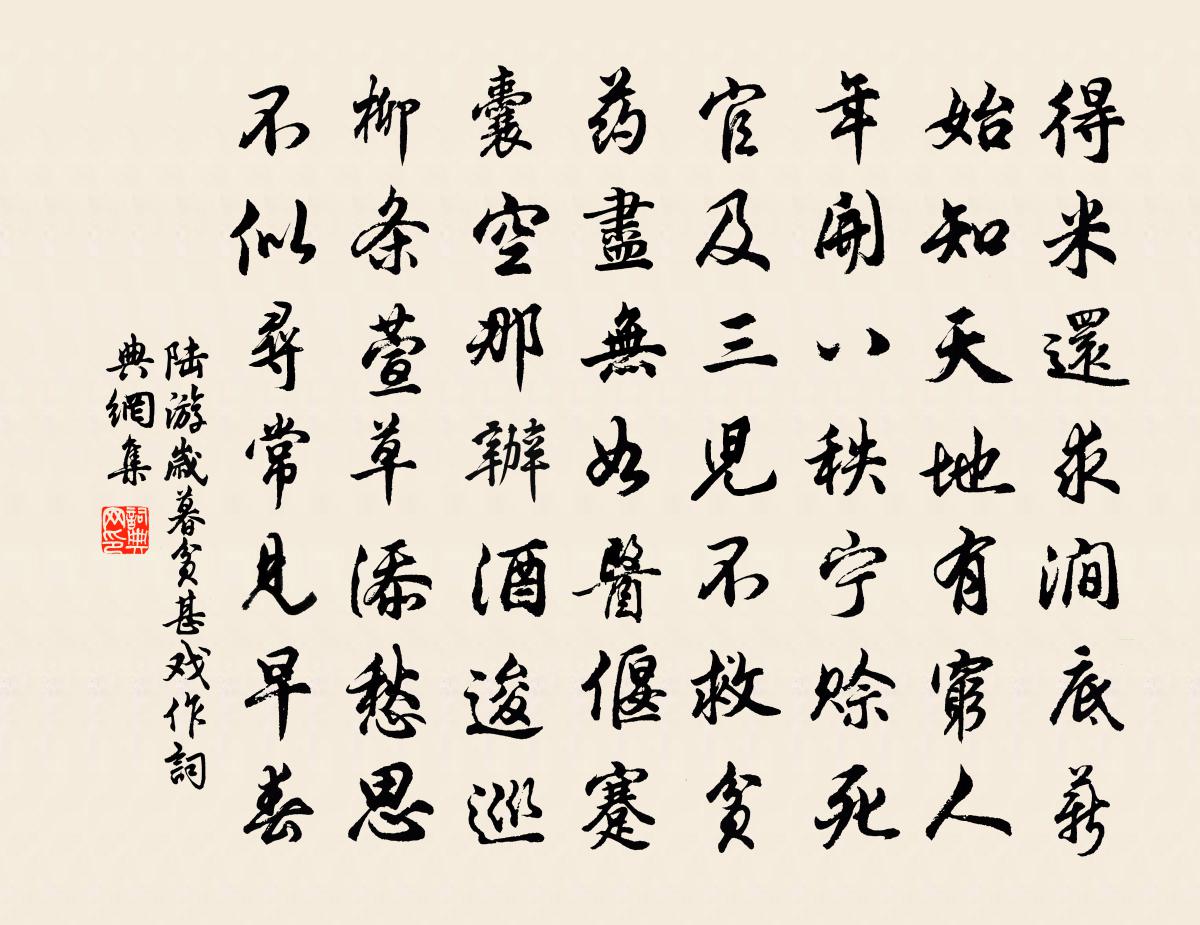 得米還求澗底薪
始知天地有窮人
年開八秩宁赊死
官及三児不救貧
药盡無如醫偃蹇
囊空那辦酒逡巡
柳条萱草添愁思
不似尋常見早春
陆游歲暮貧甚戏作詞
典網集
詞典
网印